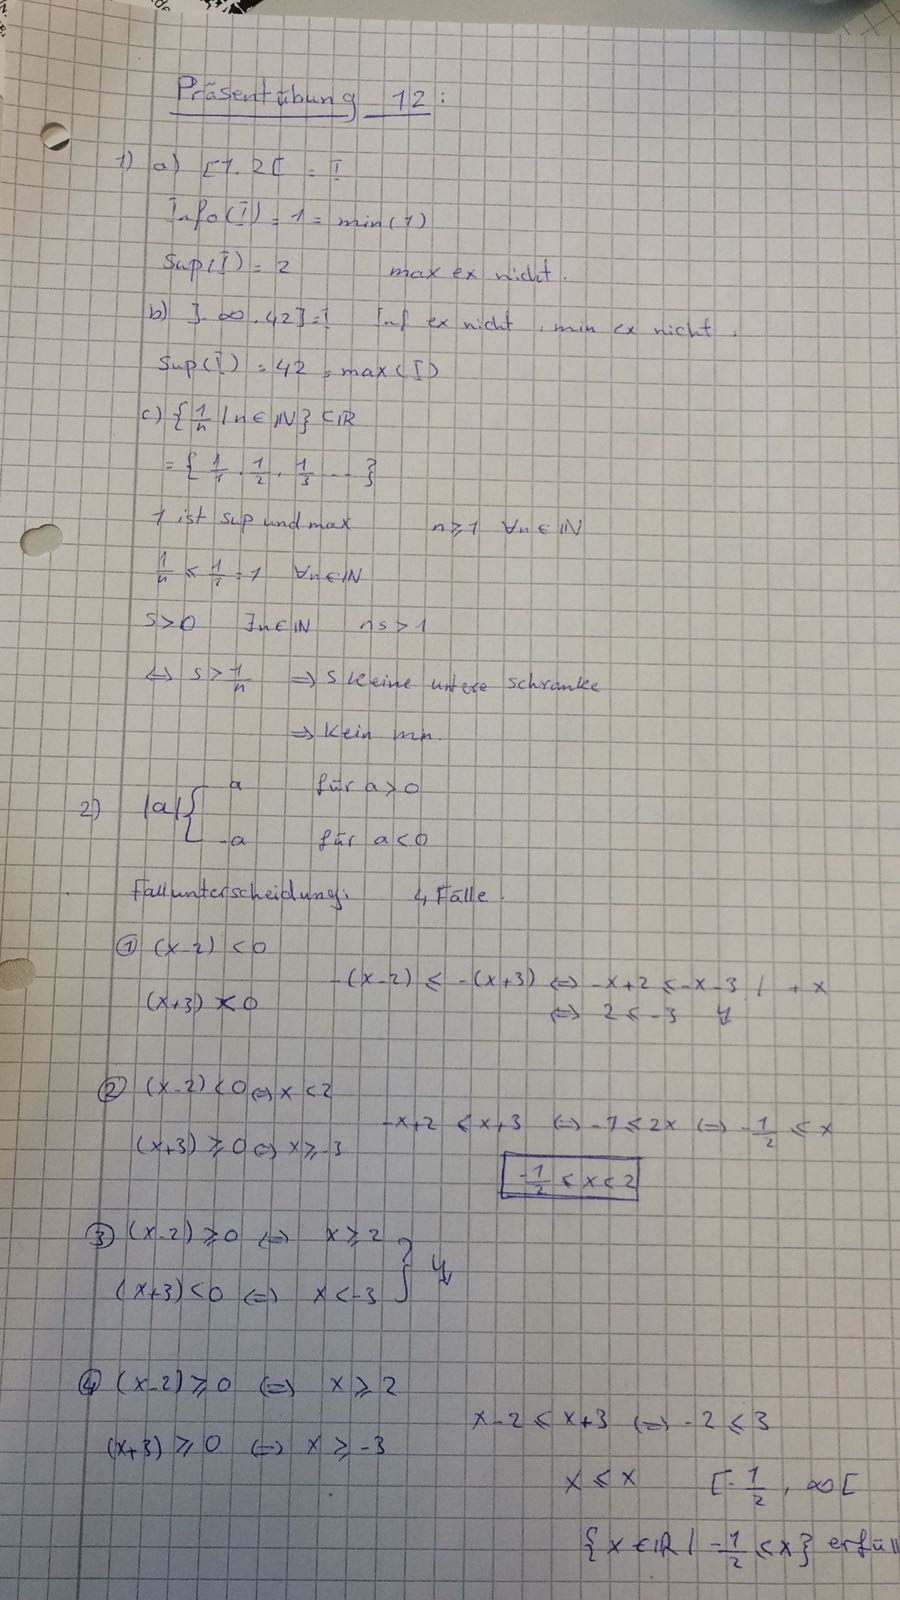 Präsentübung 12:
1) a) [1, 2[ = I
Info(I) = 1 = min(1)
Sup(I) = 2 max ex nicht.
b) ]-∞, 42] = I Inf ex nicht, min ex nicht.
Sup(I) = 42 = max(I)
c) {1/n | n ∈ ℕ} ⊂ ℝ
= {1/1, 1/2, 1/3 ---}
1 ist sup und max n ≥ 1 ∀n ∈ ℕ
1/n ≤ 1/1 = 1 ∀n ∈ ℕ
s > 0 ∃n ∈ ℕ ns > 1
⇔ s > 1/n ⇒ s keine untere Schranke
⇒ Kein min.
2) |a| { a für a > 0
-a für a < 0
Fallunterscheidung: 4 Fälle.
① (x-2) < 0
(x+3) < 0 -(x-2) ≤ -(x+3) ⇔ -x+2 ≤ -x-3 | + x
⇔ 2 ≤ -3 ↯
② (x-2) < 0 ⇔ x < 2
(x+3) ≥ 0 ⇔ x ≥ -3 -x+2 ≤ x+3 ⇔ -1 ≤ 2x ⇔ -1/2 ≤ x
-1/2 ≤ x < 2
③ (x-2) ≥ 0 ⇔ x ≥ 2
(x+3) < 0 ⇔ x < -3 } ↯
④ (x-2) ≥ 0 ⇔ x ≥ 2
(x+3) ≥ 0 ⇔ x ≥ -3 x-2 ≤ x+3 ⇔ -2 ≤ 3
x ≤ x [-1/2, ∞[
{x ∈ ℝ | -1/2 ≤ x} erfüll